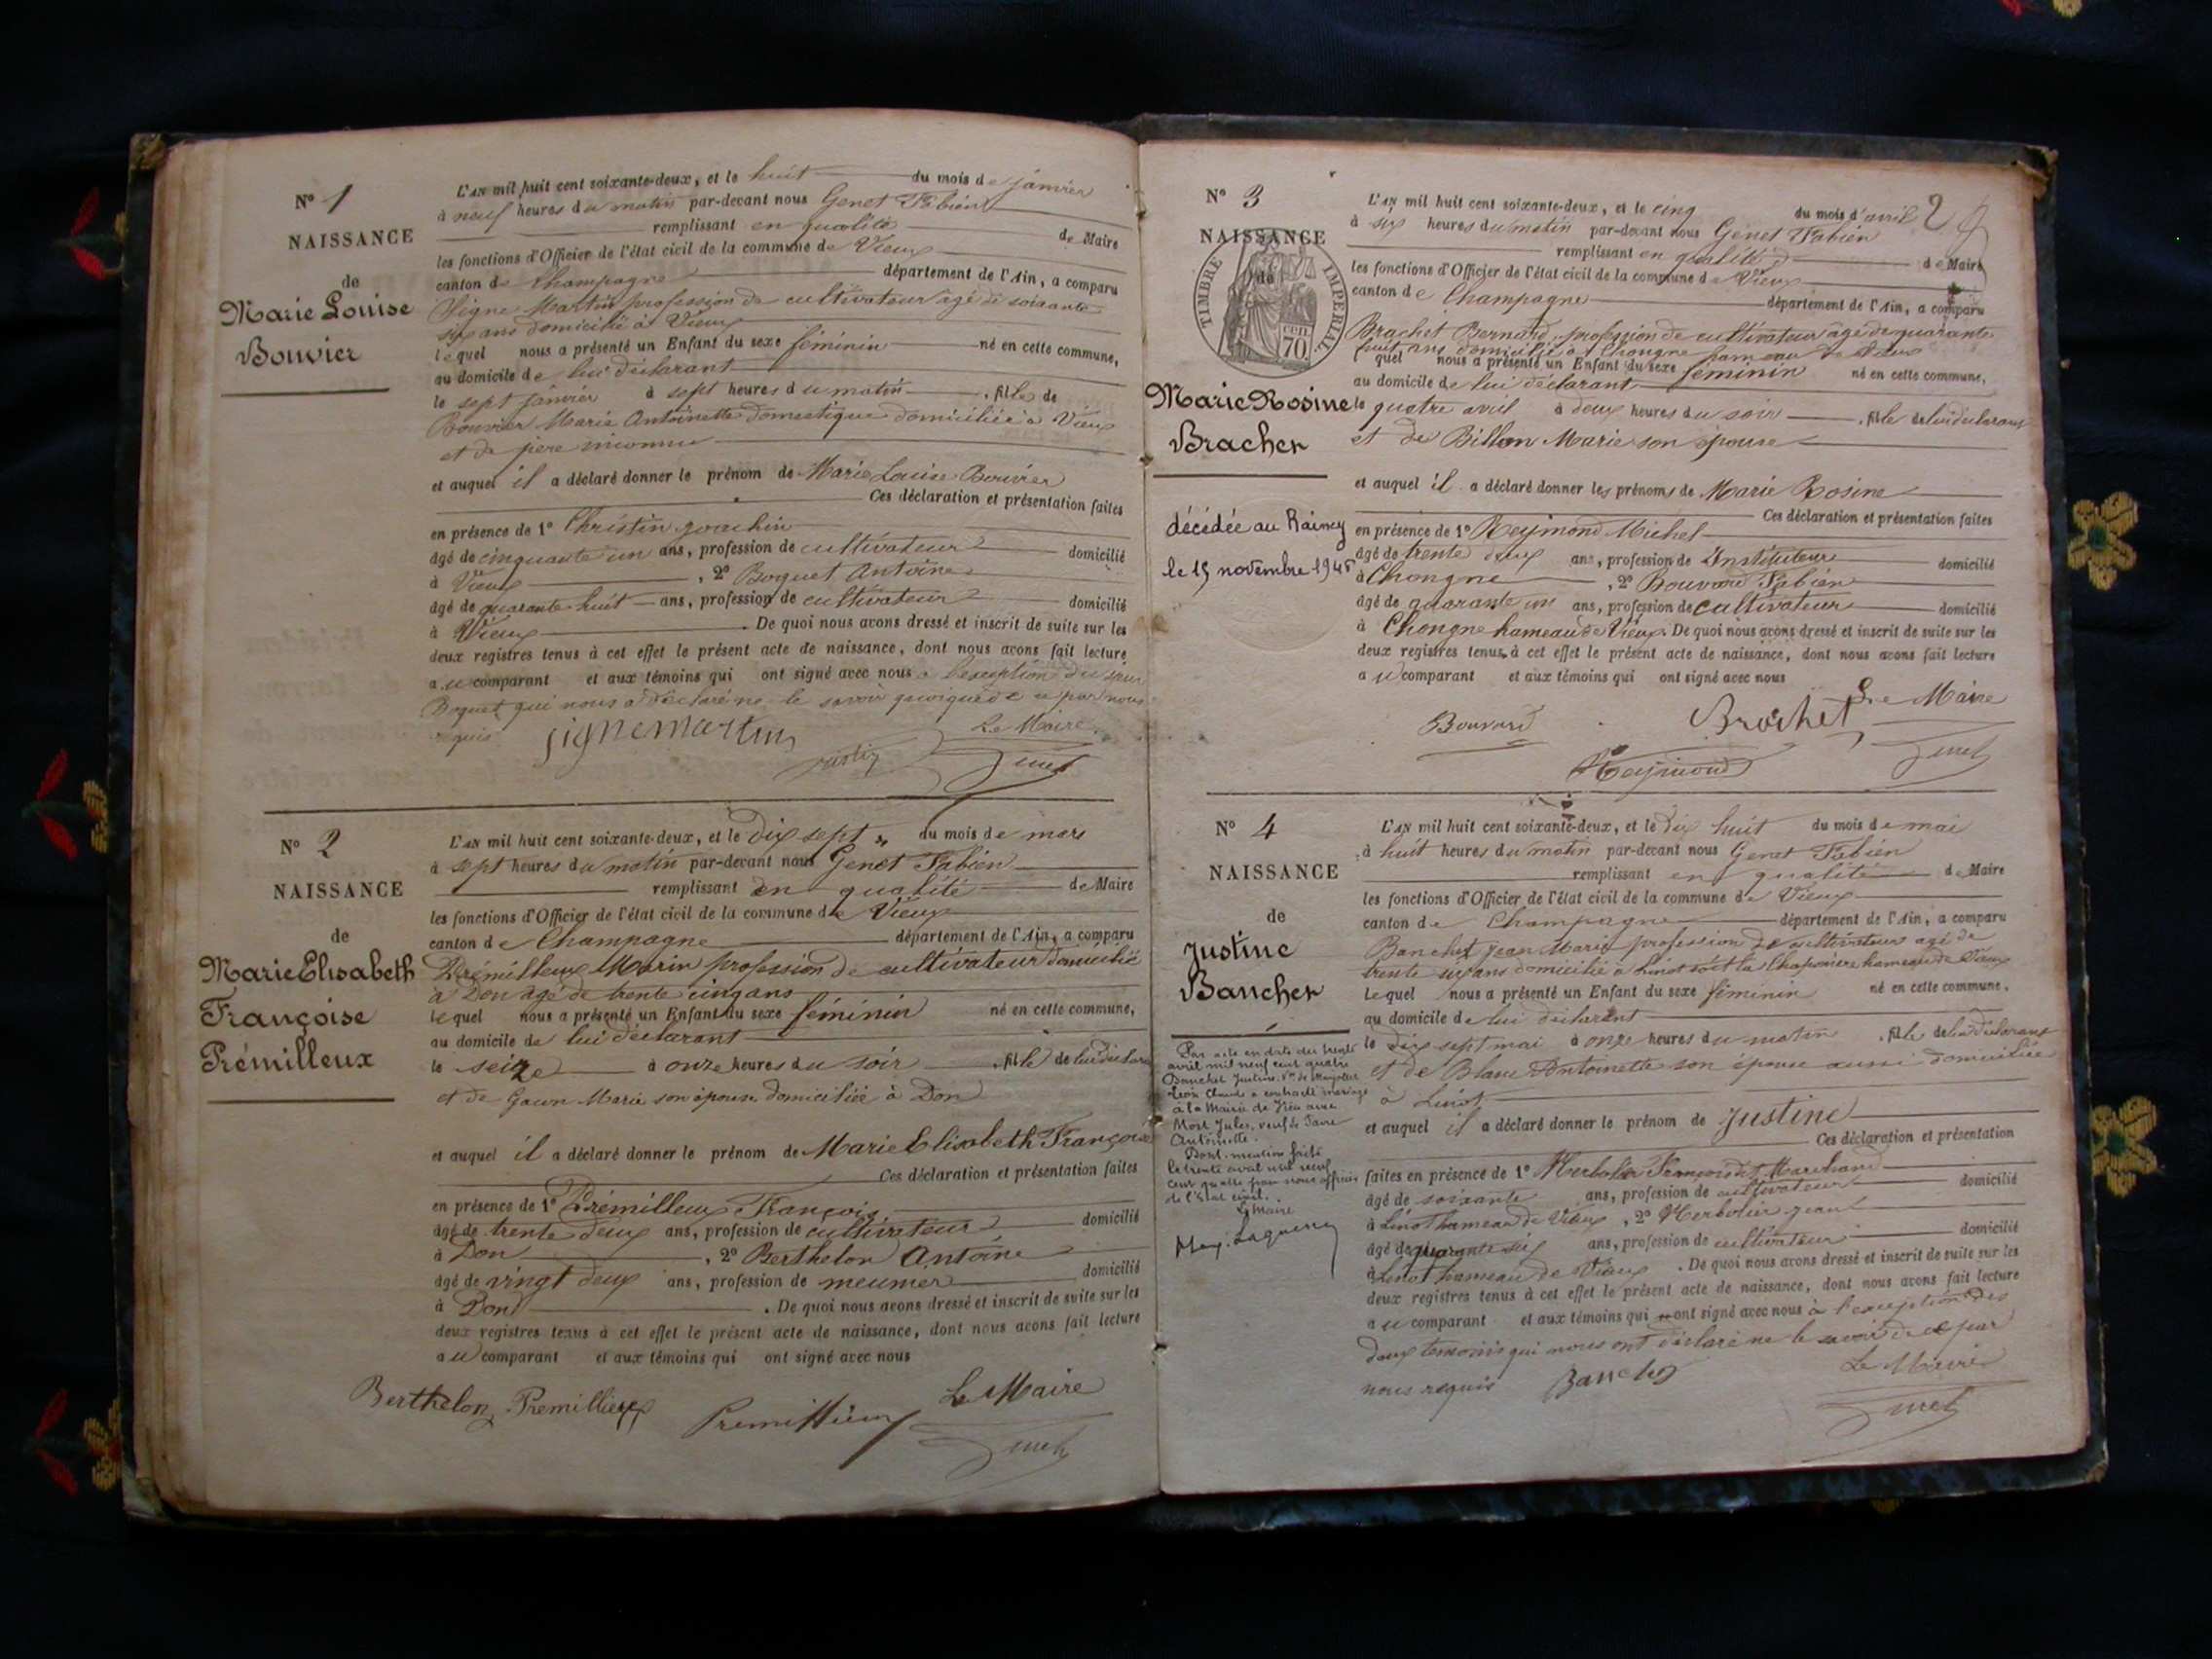 N° 1
NAISSANCE
de
Marie Louise
Bouvier
L'AN mil huit cent soixante-deux, et le huit du mois de janvier
à neuf heures du matin par-devant nous Genet Fabien
remplissant en qualité de Maire
les fonctions d'Officier de l'état civil de la commune de Vieux
canton de Champagne département de l'Ain, a comparu
Signe Martin profession de cultivateur agé de soixante
six ans domicilié à Vieux
lequel nous a présenté un Enfant du sexe féminin né en cette commune,
au domicile de lui déclarant
le sept janvier à sept heures du matin, fille de
Bouvier Marie Antoinette domestique domiciliée à Vieux
et de père inconnu
et auquel il a déclaré donner le prénom de Marie Louise Bouvier
Ces déclaration et présentation faites
en présence de 1° Christin Joachin
âgé de cinquante un ans, profession de cultivateur domicilié
à Vieux, 2° Borguet Antoine
âgé de quarante huit ans, profession de cultivateur domicilié
à Vieux. De quoi nous avons dressé et inscrit de suite sur les
deux registres tenus à cet effet le présent acte de naissance, dont nous avons fait lecture
au comparant et aux témoins qui ont signé avec nous à l'exception du sieur
Boguet qui nous a déclaré ne le savoir quoique de ce par nous
requis
signe martin
Le Maire
Genet
N° 2
NAISSANCE
de
Marie Elisabeth
Françoise
Prémilleux
L'AN mil huit cent soixante-deux, et le dix sept du mois de mars
à sept heures du matin par-devant nous Genet Fabien
remplissant en qualité de Maire
les fonctions d'Officier de l'état civil de la commune de Vieux
canton de Champagne département de l'Ain, a comparu
Prémilleux Marin profession de cultivateur domicilié
à Don agé de trente cinq ans
lequel nous a présenté un Enfant du sexe féminin né en cette commune,
au domicile de lui déclarant
le seize à onze heures du soir, fille de lui déclarant
et de Marie son épouse domiciliée à Don
et auquel il a déclaré donner le prénom de Marie Elisabeth Françoise
Ces déclaration et présentation faites
en présence de 1° Prémilleux François
âgé de trente deux ans, profession de cultivateur domicilié
à Don, 2° Berthelon Antoine
âgé de vingt deux ans, profession de meunier domicilié
à Don. De quoi nous avons dressé et inscrit de suite sur les
deux registres tenus à cet effet le présent acte de naissance, dont nous avons fait lecture
au comparant et aux témoins qui ont signé avec nous
Berthelon Premillieux Premillieux Le Maire
Genet
N° 3
NAISSANCE
de
TIMBRE IMPERIAL
70 cen.
Marie Rosine
Brachet
décédée au Raincy
le 15 novembre 1945
2
L'AN mil huit cent soixante-deux, et le cinq du mois d'avril
à six heures du matin par-devant nous Genet Fabien
remplissant en qualité de Maire
les fonctions d'Officier de l'état civil de la commune de Vieux
canton de Champagne département de l'Ain, a comparu
Brachet Bernard, profession de cultivateur âgé de quarante
huit ans domicilié à Chongne hameau de Vieux
quel nous a présenté un Enfant du sexe féminin né en cette commune,
au domicile de lui déclarant
le quatre avril à deux heures du soir, fille de lui déclarant
et de Billon Marie son épouse
et auquel il a déclaré donner les prénoms de Marie Rosine
Ces déclaration et présentation faites
en présence de 1° Reymond Michel
âgé de trente deux ans, profession de Instituteur domicilié
à Chongne, 2° Bouvard Fabien
âgé de quarante un ans, profession de cultivateur domicilié
à Chongne hameau de Vieux. De quoi nous avons dressé et inscrit de suite sur les
deux registres tenus à cet effet le présent acte de naissance, dont nous avons fait lecture
au comparant et aux témoins qui ont signé avec nous
Bouvard Brachet Le Maire
Reymond Genet
N° 4
NAISSANCE
de
Justine
Banchet
Par acte en date du trente
avril mil neuf cent quatre
Banchet Justine Vve de
Léon Claude a contracté mariage
à la Mairie de Vieu avec
Mort Jules, veuf de Favre
Antoinette.
Dont mention faite
le trente avril mil neuf
cent quatre par nous officier
de l'état civil.
Le Maire
L'AN mil huit cent soixante-deux, et le dix huit du mois de mai
à huit heures du matin par-devant nous Genet Fabien
remplissant en qualité de Maire
les fonctions d'Officier de l'état civil de la commune de Vieux
canton de Champagne département de l'Ain, a comparu
Banchet Jean Marie profession de cultivateur agé de
trente six ans domicilié à Linot hameau de Vieux
Lequel nous a présenté un Enfant du sexe féminin né en cette commune,
au domicile de lui déclarant
le dix sept mai à onze heures du matin, fille de lui déclarant
et de Blanc Antoinette son épouse aussi domiciliée
à Linot
et auquel il a déclaré donner le prénom de Justine
Ces déclaration et présentation
faites en présence de 1° Herbolier François dit Marchand
âgé de soixante ans, profession de cultivateur domicilié
à Linot hameau de Vieux, 2° Herbolier Jean
âgé de quarante six ans, profession de cultivateur domicilié
à Linot hameau de Vieux. De quoi nous avons dressé et inscrit de suite sur les
deux registres tenus à cet effet le présent acte de naissance, dont nous avons fait lecture
au comparant et aux témoins qui ont signé avec nous à l'exception des
deux témoins qui nous ont déclaré ne le savoir de ce par
nous requis Banchet Le Maire
Genet